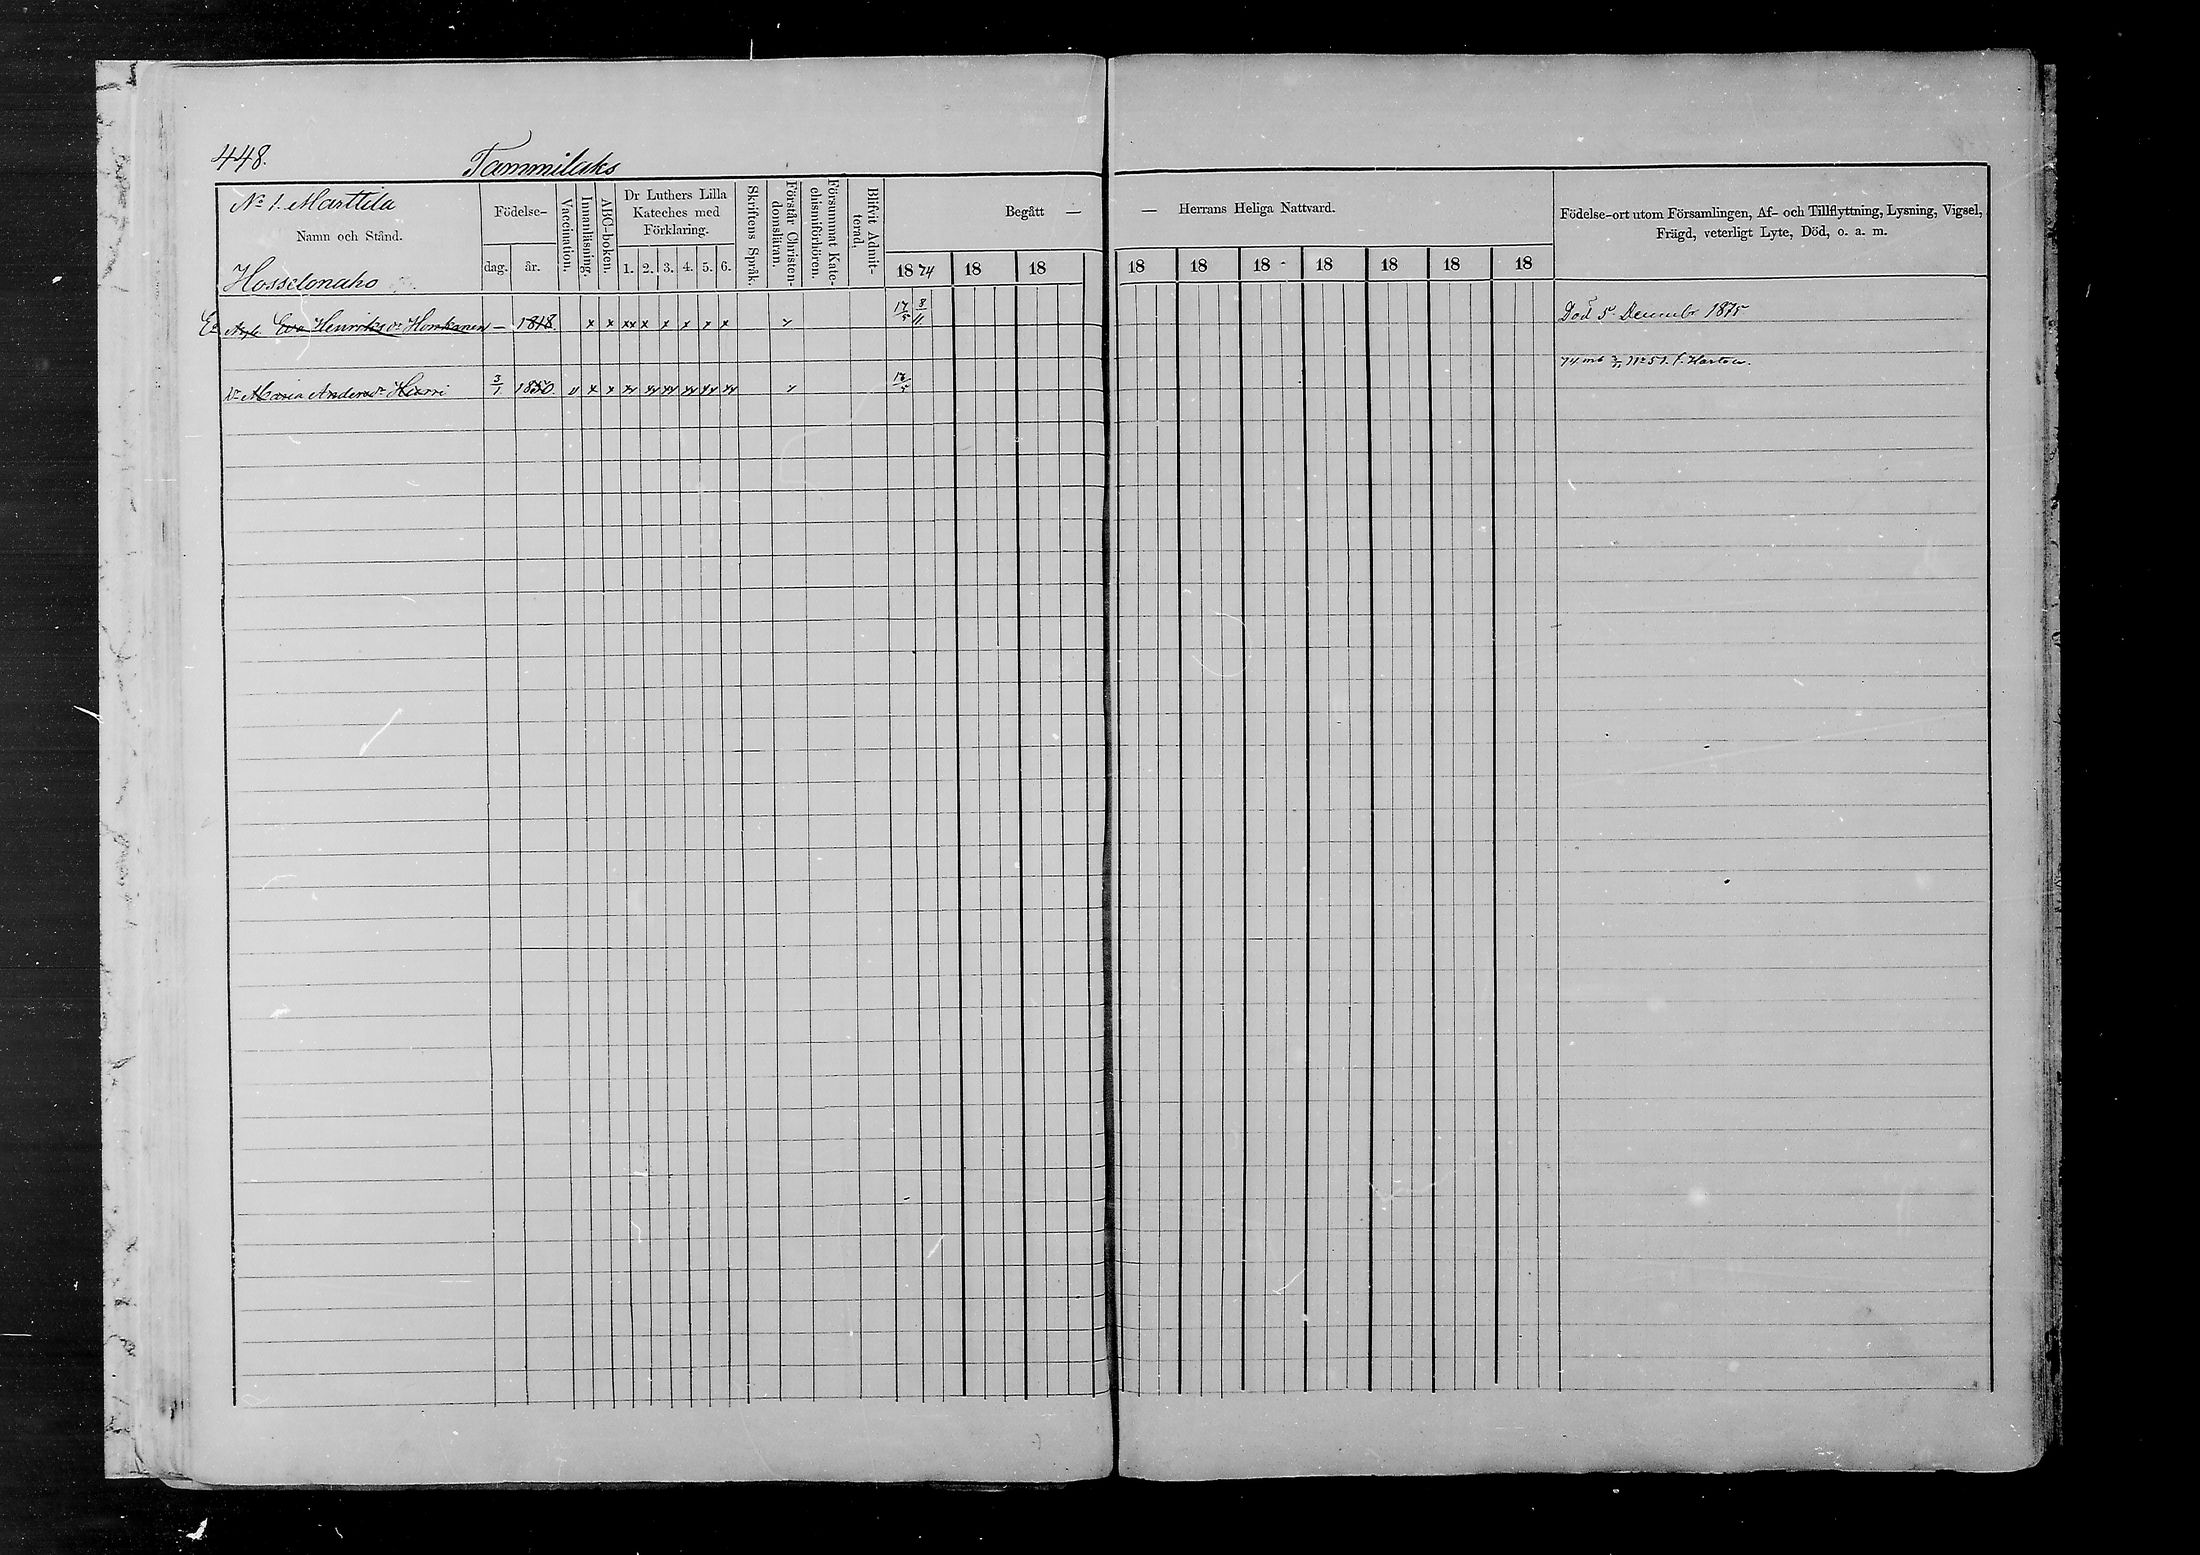 448.
Tammilaks
No 1. Marttila
Namn och Stånd.
Hosselonaho
Födelse-
dag.
år.
Vaccination.
Innanläsning.
ABC-boken.
Dr Luthers Lilla
Kateches med
Förklaring.
1. 2. 3. 4. 5. 6.
Skriftens Språk.
Förstår Christen-
domsläran.
Försummat Kate-
chismiförhören.
Blifvit Admit-
terad.
Begått —
— Herrans Heliga Nattvard.
1874 18 18 18 18 18 18 18 18 18
Födelse-ort utom Församlingen, Af- och Tillflyttning, Lysning, Vigsel,
Frägd, veterligt Lyte, Död, o. a. m.
Eva Henriksdr Honkanen — 1818. x x xx x x x x x 17/5 8/11 Död 5 December 1875
74 No 51
Dr Maria Andersdr Harri 3/1 1850. 17/5